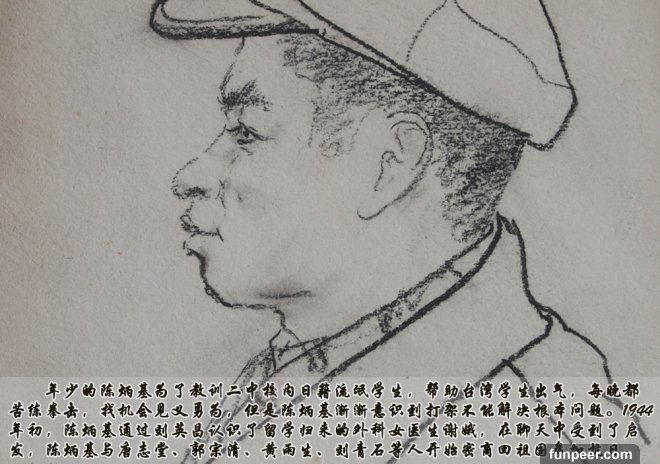 年少的陈炳基为了教训二中校内日籍流氓学生，帮助台湾学生出气，每晚都
苦练拳击，找机会见义勇为，但是陈炳基渐渐意识到打架不能解决根本问题。1944
年初，陈炳基通过刘英昌认识了留学归来的外科女医生谢娥，在聊天中受到了启
发，陈炳基与唐志堂、郭宗清、黄雨生、刘青石等人开始密商回祖国
funpeer.com